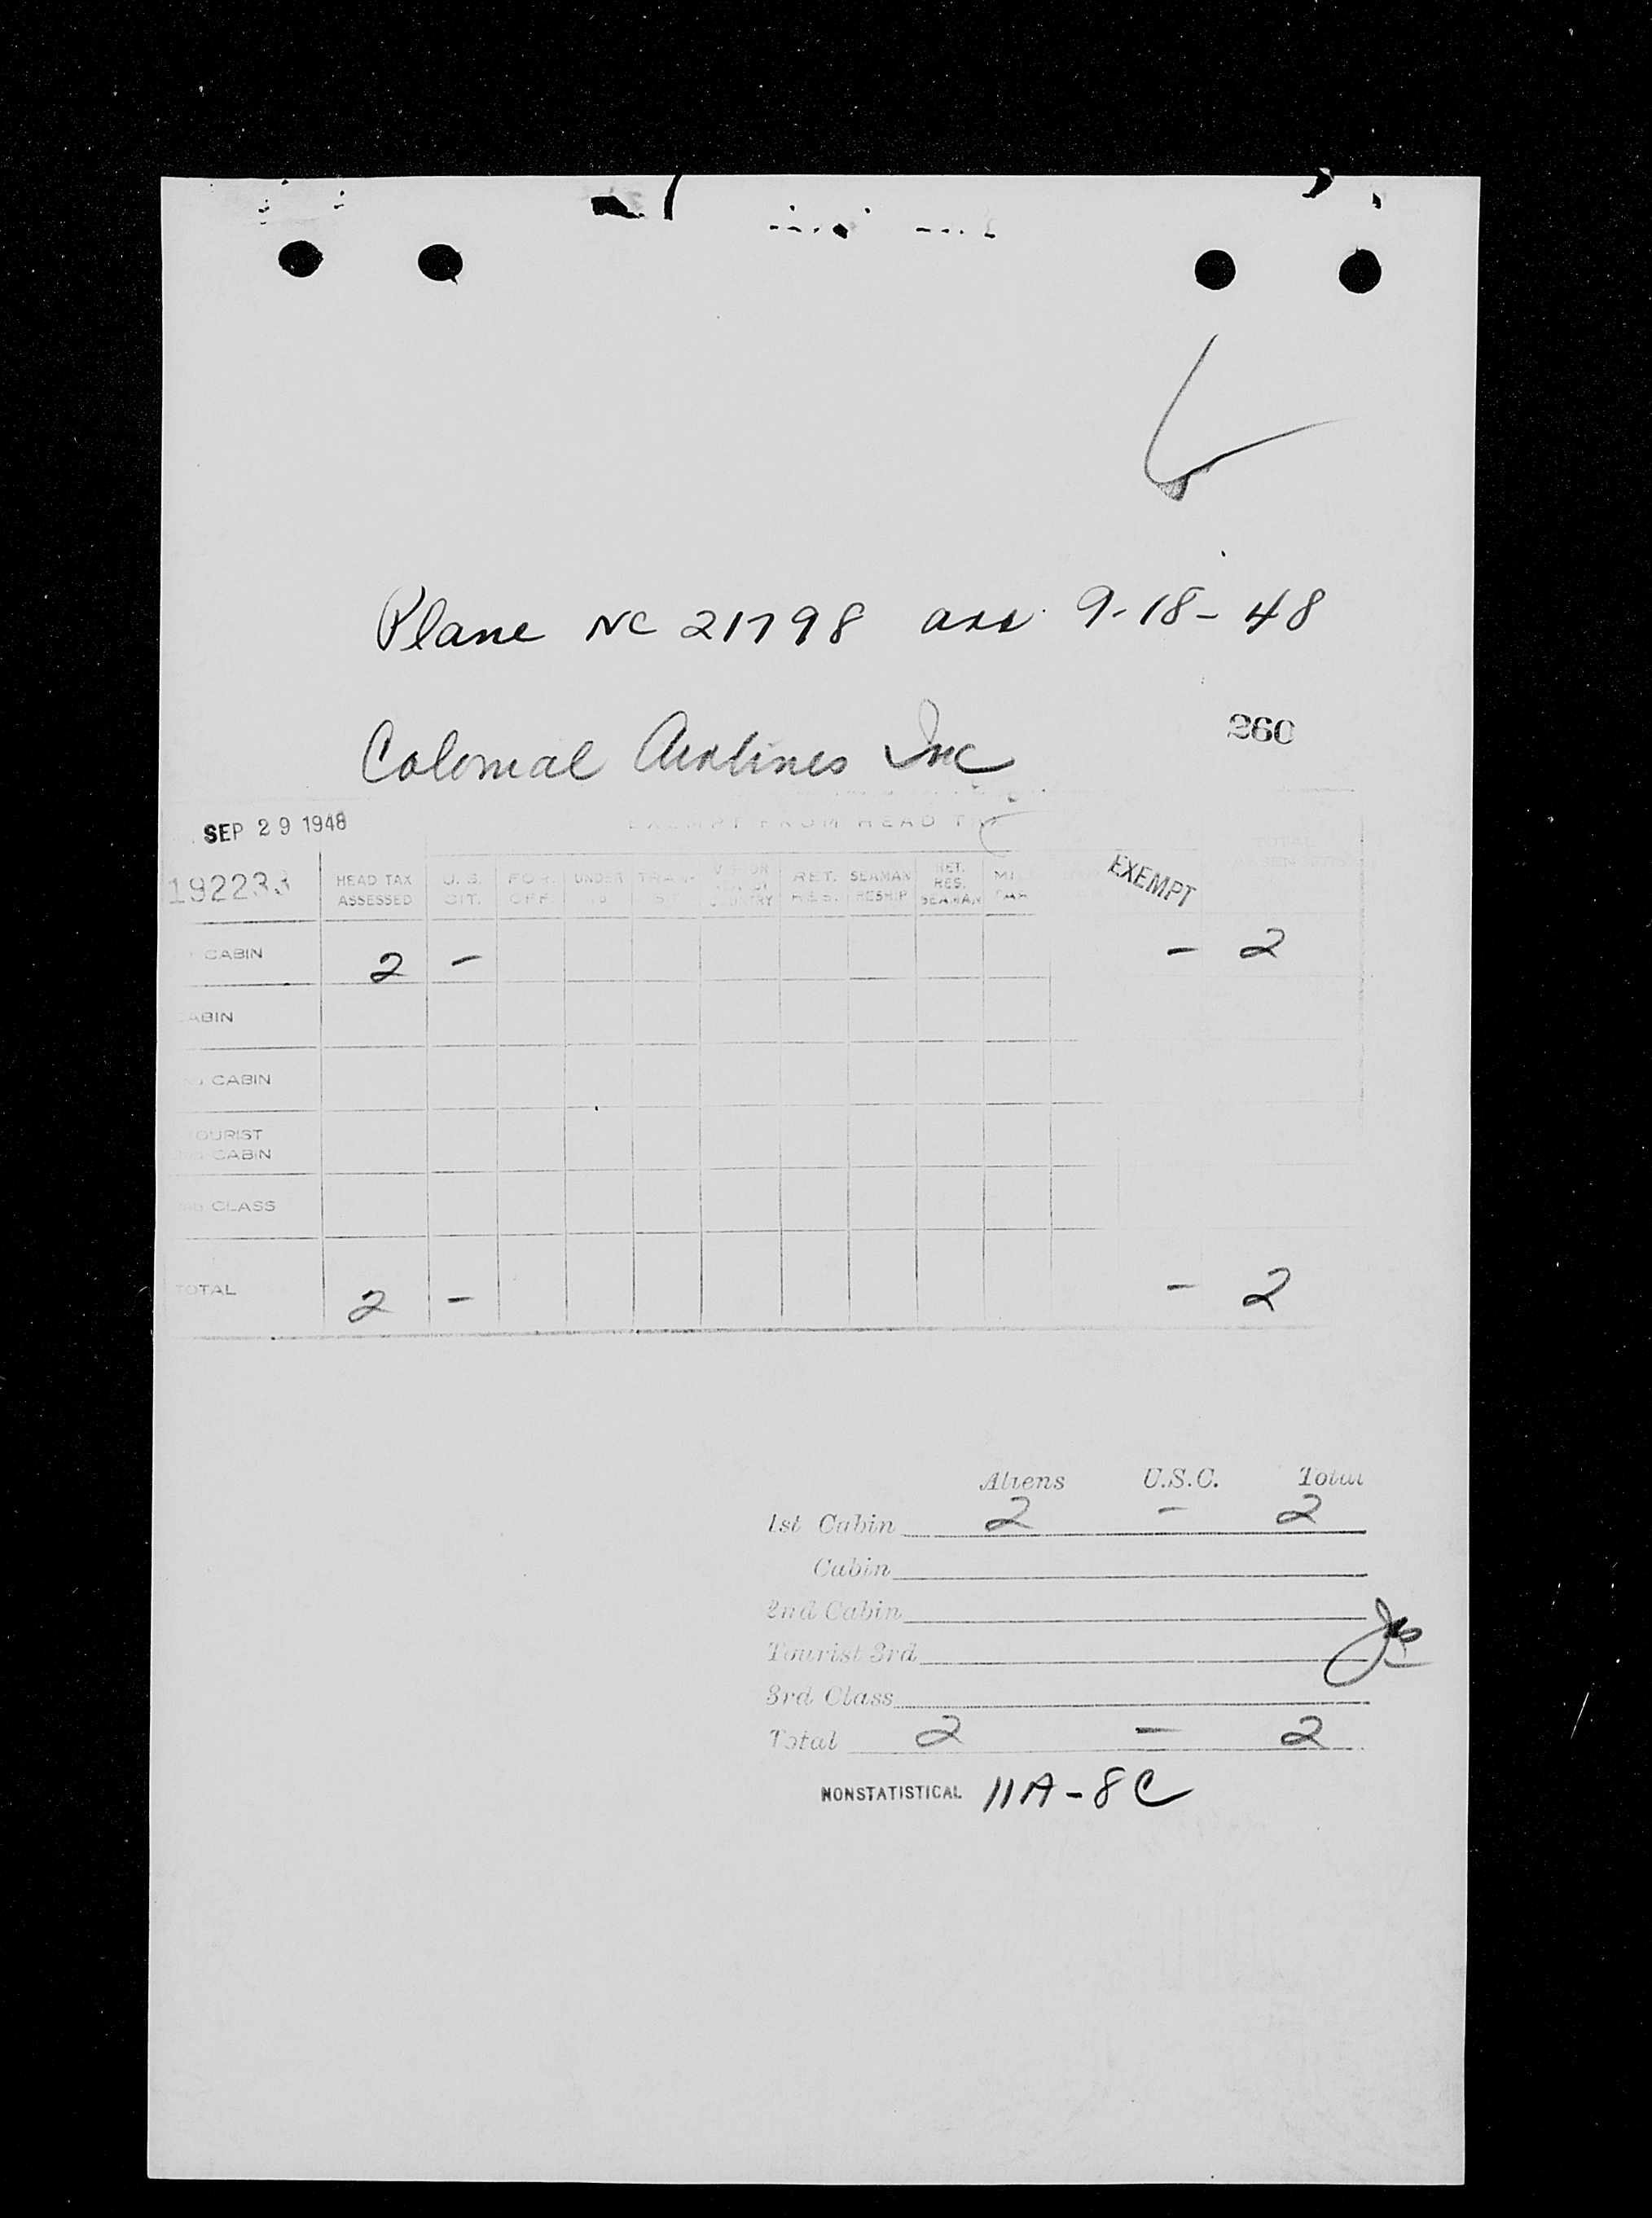 Plane NC 21798 arr. 9-18-48
260
Colonial Airlines Inc
SEP 29 1948
EXEMPT FROM HEAD TAX
TOTAL
192233 HEAD TAX ASSESSED U.S. CIT. FOR. OFF. UNDER RET. RES. SEAMAN RESHIP RET. RES. SEAMAN EXEMPT
CABIN 2 - - 2
CABIN
CABIN
TOURIST
CABIN
CLASS
TOTAL 2 - - 2
Aliens U.S.C. Total
1st Cabin 2 - 2
Cabin
2nd Cabin
Tourist 3rd
3rd Class
Total 2 - 2
NONSTATISTICAL 11A-8C